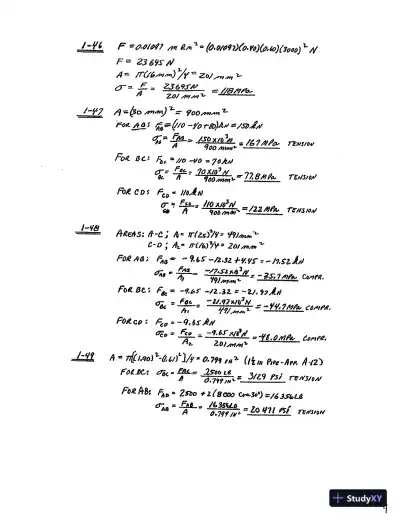 1-46 F = 0.01097 m R n² = (0.01097)(0.40)(0.60)(3000)² N
F = 23 695 N
A = π(16 mm)²/4 = 201 mm²
σ = F/A = 23695 N / 201 mm² = 118 MPa
1-47 A = (30 mm)² = 900 mm²
FOR AB: F_AB = (110 - 40 + 80) kN = 150 kN
σ_AB = F_AB/A = 150 x 10³ N / 900 mm² = 167 MPa TENSION
FOR BC: F_BC = 110 - 40 = 70 kN
σ_BC = F_BC/A = 70 x 10³ N / 900 mm² = 77.8 MPa TENSION
FOR CD: F_CD = 110 kN
σ_CD = F_CD/A = 110 x 10³ N / 900 mm² = 122 MPa TENSION
1-48 AREAS: A-C; A₁ = π(25)²/4 = 491 mm²
C-D; A₂ = π(16)²/4 = 201 mm²
FOR AB: F_AB = -9.65 - 12.32 + 4.45 = -17.52 kN
σ_AB = F_AB/A₁ = -17.52 x 10³ N / 491 mm² = -35.7 MPa COMPR.
FOR BC: F_BC = -9.65 - 12.32 = -21.97 kN
σ_BC = F_BC/A₁ = -21.97 x 10³ N / 491 mm² = -44.7 MPa COMPR.
FOR CD: F_CD = -9.65 kN
σ_CD = F_CD/A₂ = -9.65 x 10³ N / 201 mm² = -48.0 MPa COMPR.
1-49 A = π[(1.90)² - (1.61)²]/4 = 0.799 IN² (1½ IN PIPE - APP. A-12)
FOR BC: σ_BC = F_BC/A = 2500 LB / 0.799 IN² = 3129 PSI TENSION
FOR AB: F_AB = 2500 + 2(8000 cos 30°) = 16356 LB
σ_AB = F_AB/A = 16356 LB / 0.799 IN² = 20 471 PSI TENSION
StudyXY